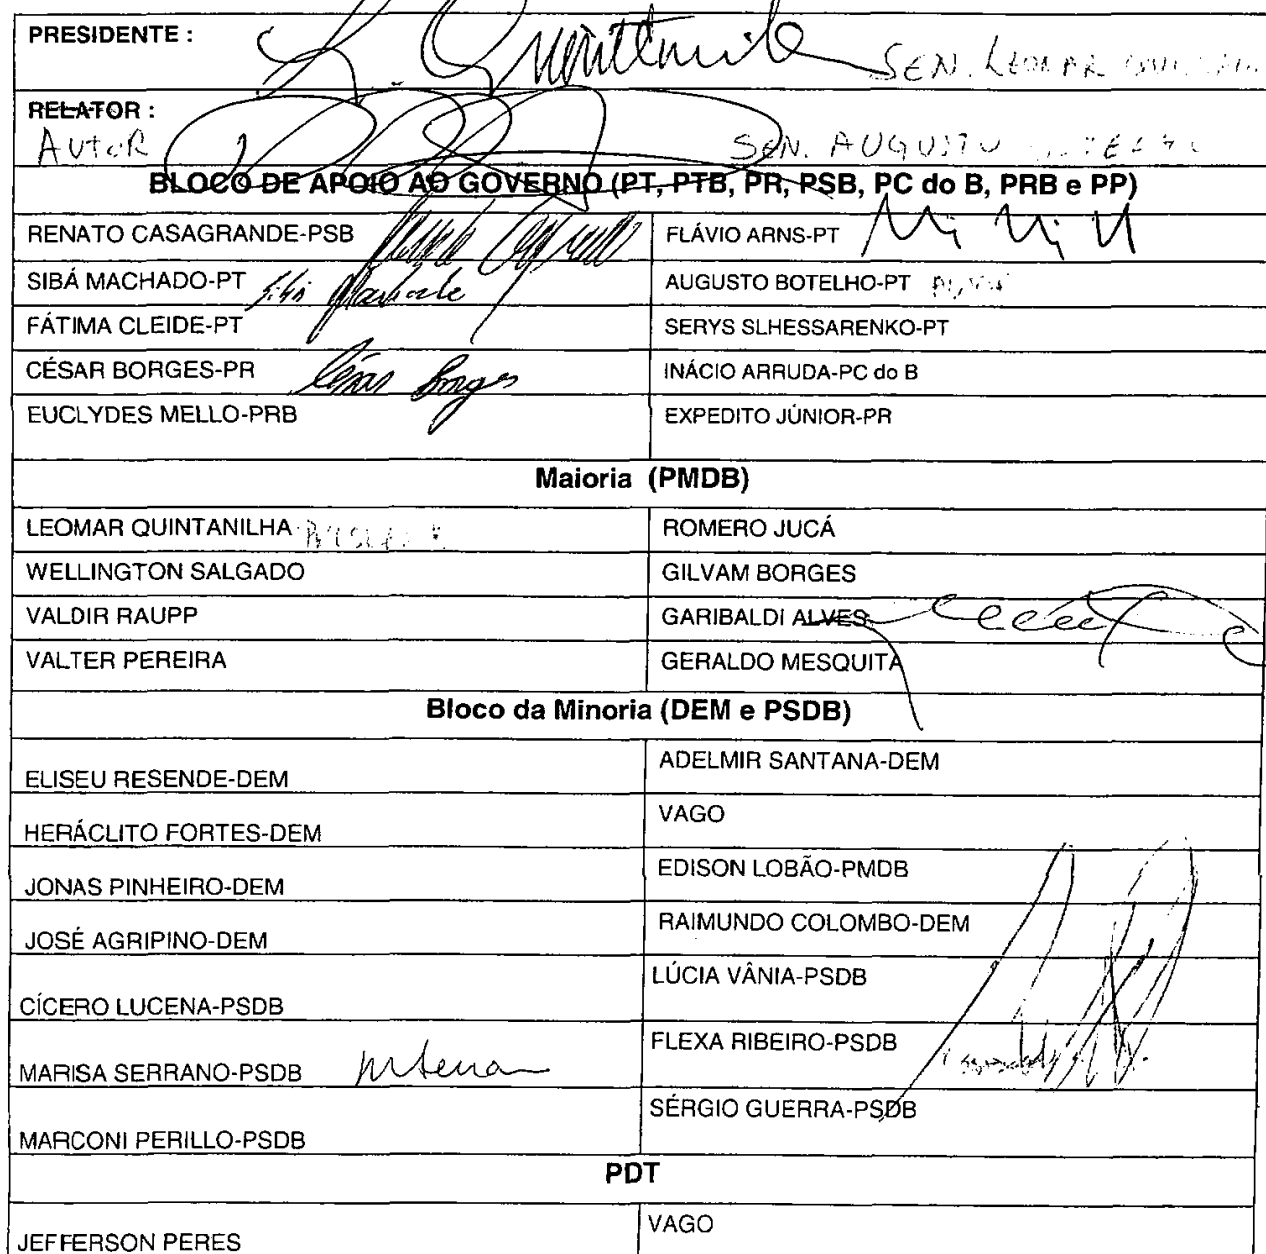 PRESIDENTE :
SEN. LEOMAR
RELATOR :
AUTOR
SEN. AUGUSTO
BLOCO DE APOIO AO GOVERNO (PT, PTB, PR, PSB, PC do B, PRB e PP)
RENATO CASAGRANDE-PSB
FLÁVIO ARNS-PT
SIBÁ MACHADO-PT Sibá Machado
AUGUSTO BOTELHO-PT
FÁTIMA CLEIDE-PT
SERYS SLHESSARENKO-PT
CÉSAR BORGES-PR César Borges
INÁCIO ARRUDA-PC do B
EUCLYDES MELLO-PRB
EXPEDITO JÚNIOR-PR
Maioria (PMDB)
LEOMAR QUINTANILHA
ROMERO JUCÁ
WELLINGTON SALGADO
GILVAM BORGES
VALDIR RAUPP
GARIBALDI ALVES
VALTER PEREIRA
GERALDO MESQUITA
Bloco da Minoria (DEM e PSDB)
ELISEU RESENDE-DEM
ADELMIR SANTANA-DEM
HERÁCLITO FORTES-DEM
VAGO
JONAS PINHEIRO-DEM
EDISON LOBÃO-PMDB
JOSÉ AGRIPINO-DEM
RAIMUNDO COLOMBO-DEM
CÍCERO LUCENA-PSDB
LÚCIA VÂNIA-PSDB
MARISA SERRANO-PSDB
FLEXA RIBEIRO-PSDB
MARCONI PERILLO-PSDB
SÉRGIO GUERRA-PSDB
PDT
JEFFERSON PERES
VAGO